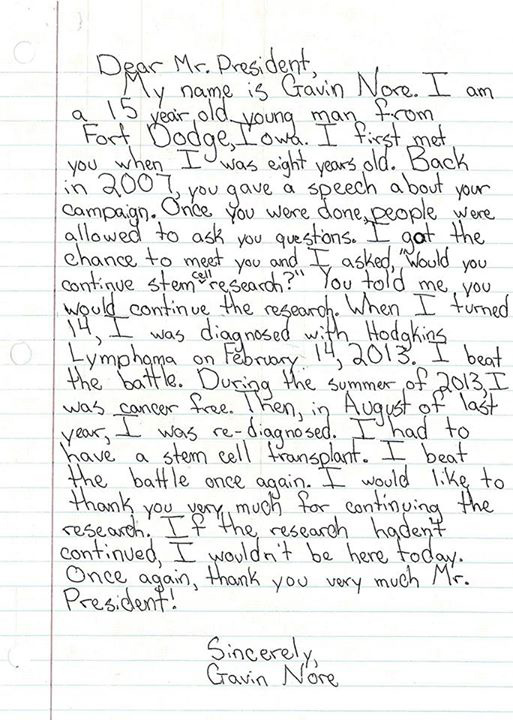 Dear Mr. President,
My name is Gavin Nore. I am
a 15 year old young man from
Fort Dodge, Iowa. I first met
you when I was eight years old. Back
in 2007, you gave a speech about your
campaign. Once you were done, people were
allowed to ask you questions. I got the
chance to meet you and I asked, "Would you
continue stem cell research?" You told me, you
would continue the research. When I turned
14, I was diagnosed with Hodgkins
Lymphoma on February 14, 2013. I beat
the battle. During the summer of 2013, I
was cancer free. Then, in August of last
year, I was re-diagnosed. I had to
have a stem cell transplant. I beat
the battle once again. I would like to
thank you very much for continuing the
research. If the research hadent
continued, I wouldn't be here today.
Once again, thank you very much Mr.
President!
Sincerely,
Gavin Nore